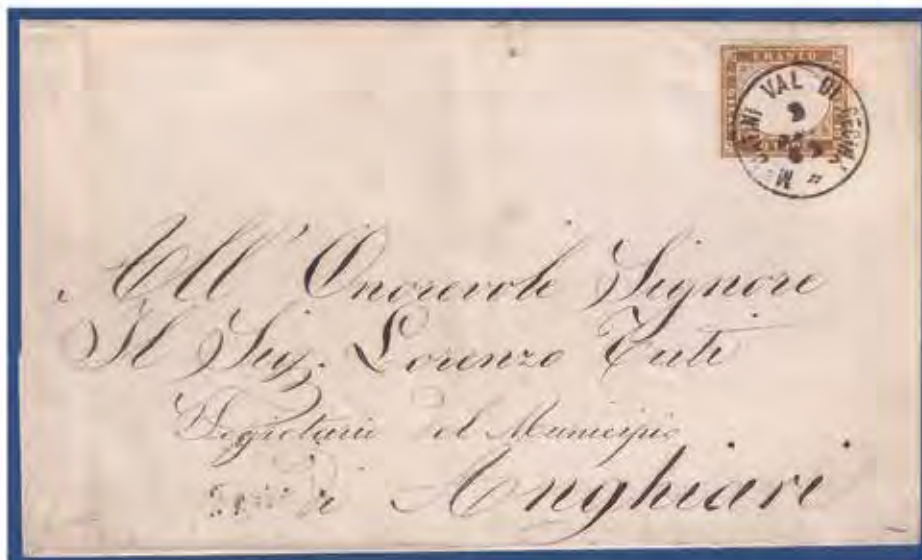 FRANCO
VAL DI
9
All' Onorevole Signore
Il Sig. Lorenzo Tuti
Segretario del Municipio
di Anghiari